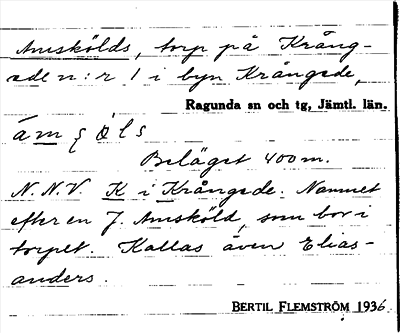 Amskölds, torp på Krång-
ede n:r 1 i byn Krångede,
Ragunda sn och tg, Jämtl. län.
Beläget 400 m.
N.N.V. K i Krångede. Namnet
efter en J. Amsköld, som bor i
torpet. Kallas även Elias-
anders.
BERTIL FLEMSTRÖM 1936.